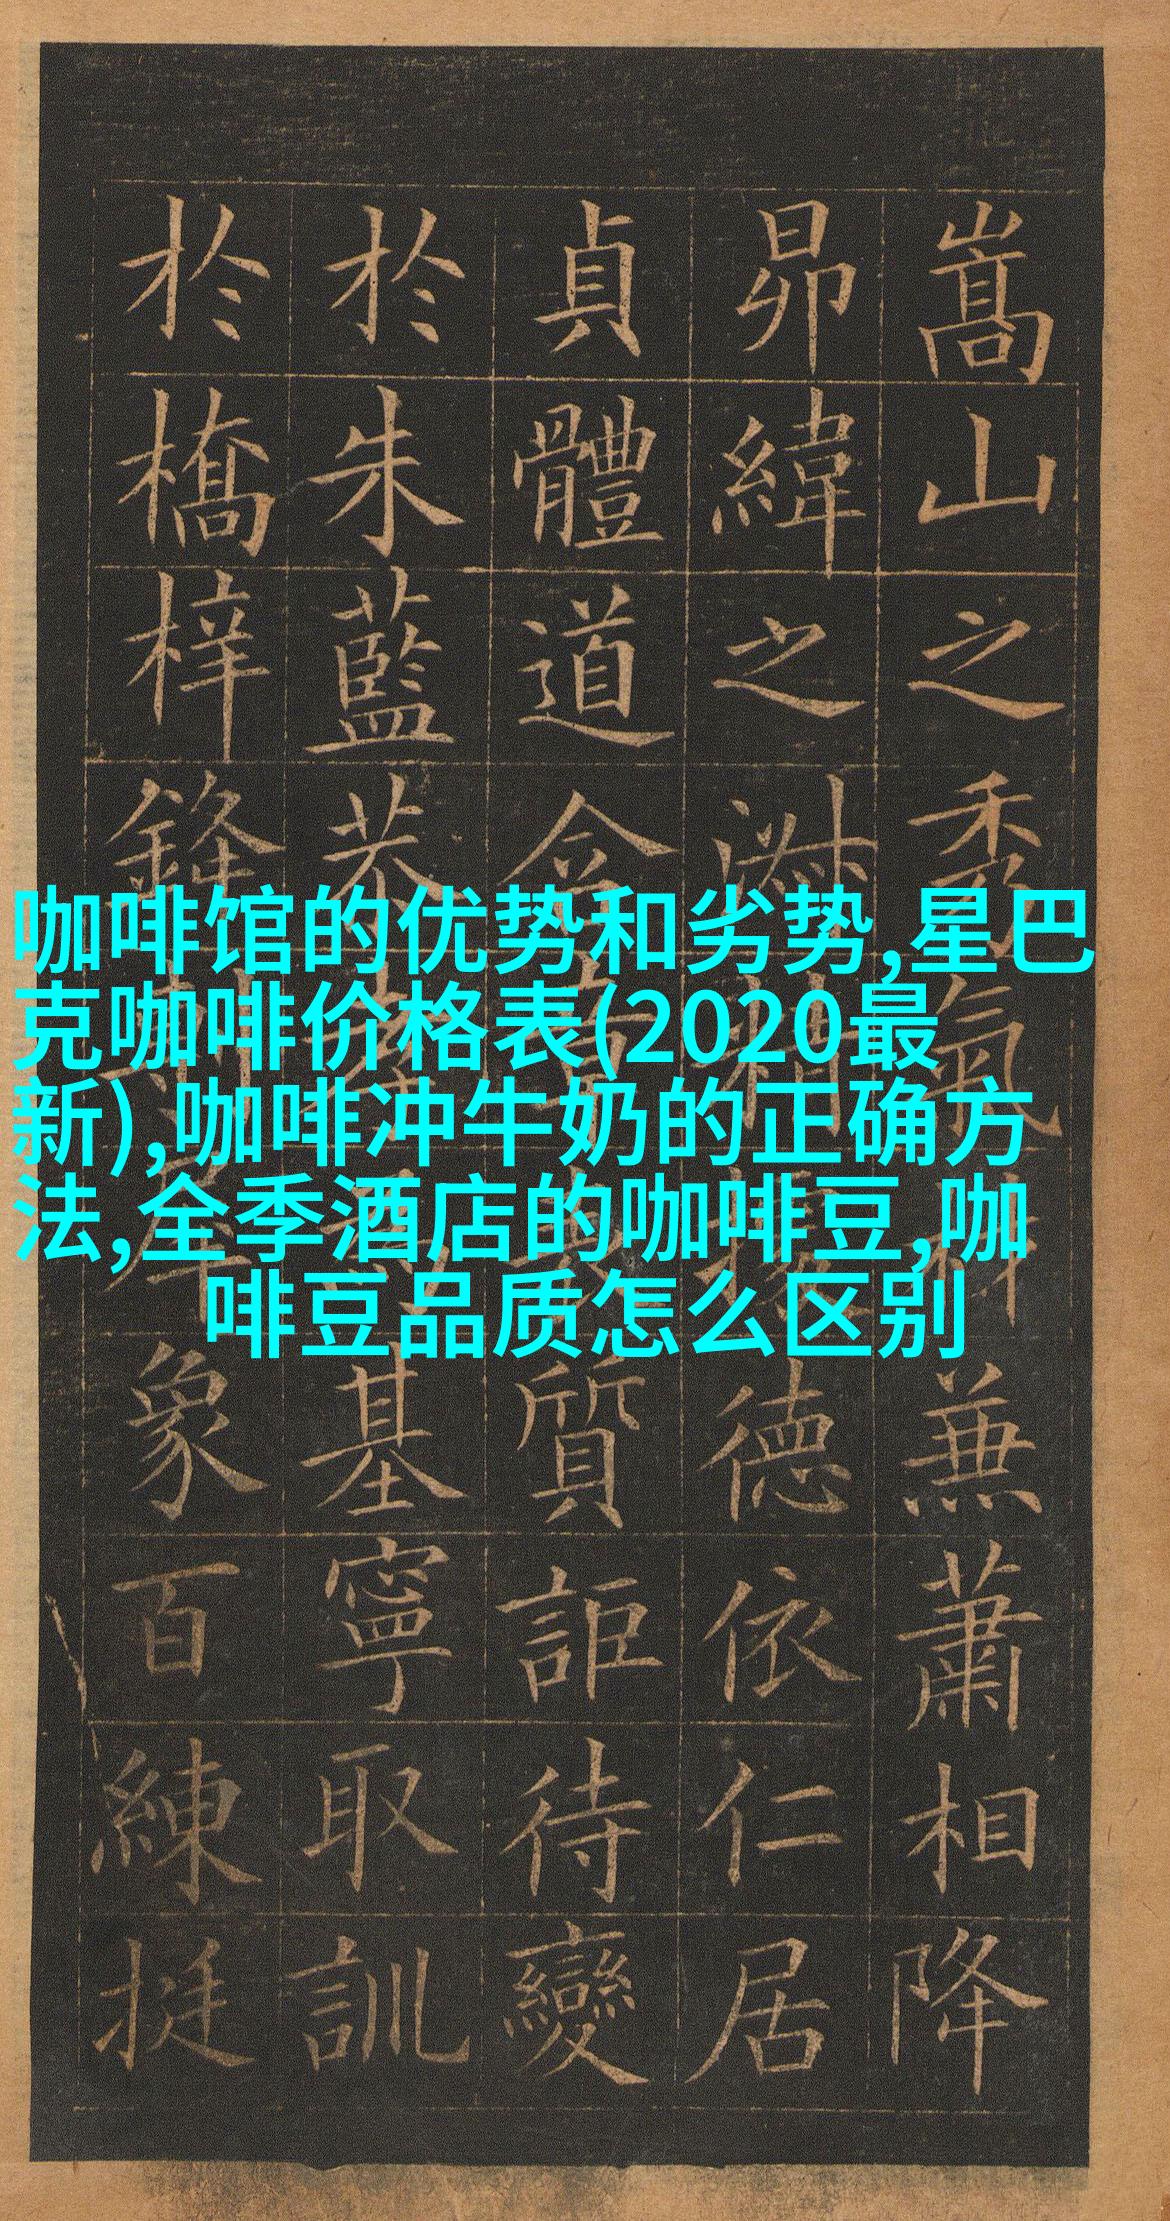 嵩山之秀氣兼蕭相降
昴緯之德依仁居
貞體道含質詎待變
於朱藍基寧取訓
於橋梓鋒象百練挺
咖啡馆的优势和劣势,星巴
克咖啡价格表(2020最
新),咖啡冲牛奶的正确方
法,全季酒店的咖啡豆,咖
啡豆品质怎么区别